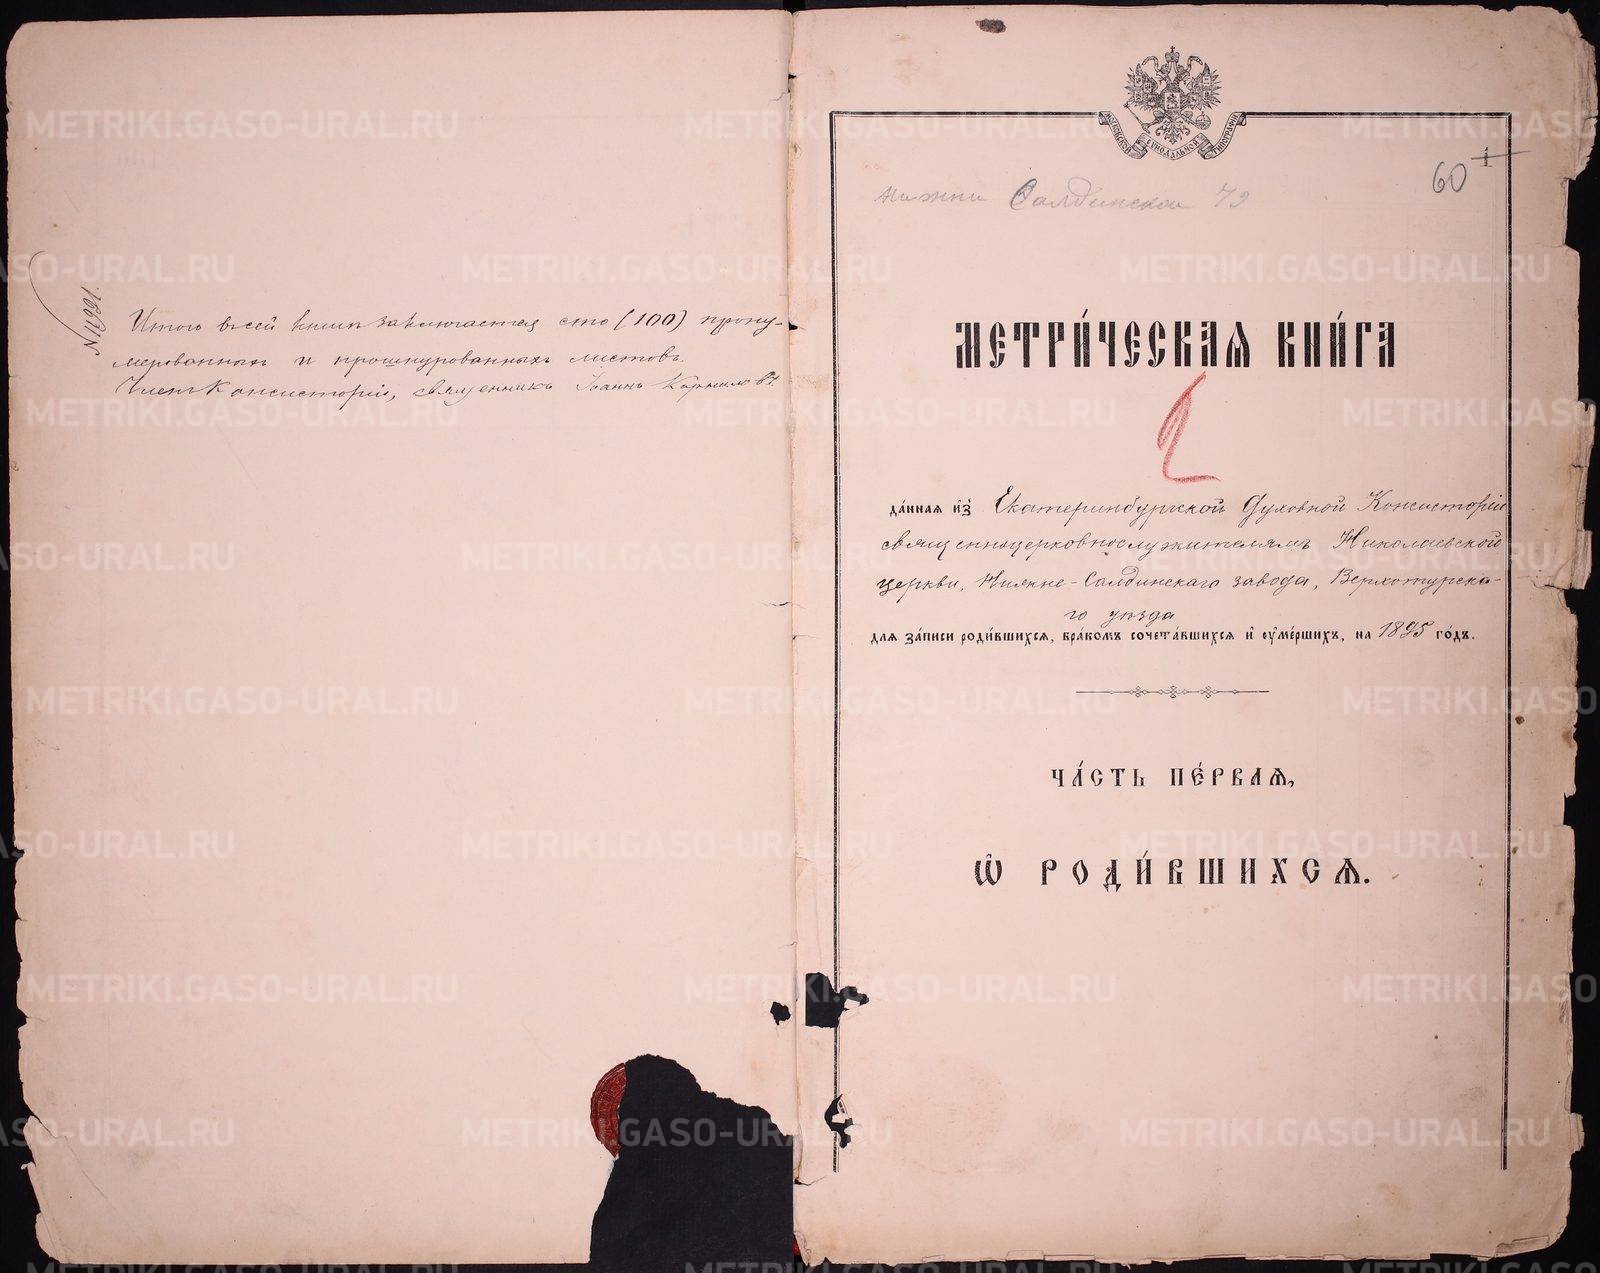 № 16671.
Итого въ сей книгѣ заключается сто (100) прону-
мерованныхъ и прошнурованныхъ листовъ.
Членъ Консисторіи, священникъ Іоаннъ Корниловъ.
МОСКОВСКОЙ СѴНОДАЛЬНОЙ ТИПОГРАФІИ
60 1
Нижни Салдинской 79
МЕТРИ́ЧЕСКАѦ КНИ́ГА
2
да́нная и҆з̾ Екатеринбургской Духовной Консисторіи
священноцерковнослужителямъ Николаевской
церкви, Нижне-Салдинскаго завода, Верхотурска-
го уѣзда
для за́писи роди́вшихсѧ, бра́комъ сочета́вшихсѧ и҆ ᲂу҆ме́ршихъ, на 1895 го́дъ.
ЧА́СТЬ ПЕ́РВАѦ,
Ѽ РОДИ́ВШИХСѦ.
METRIKI.GASO-URAL.RU